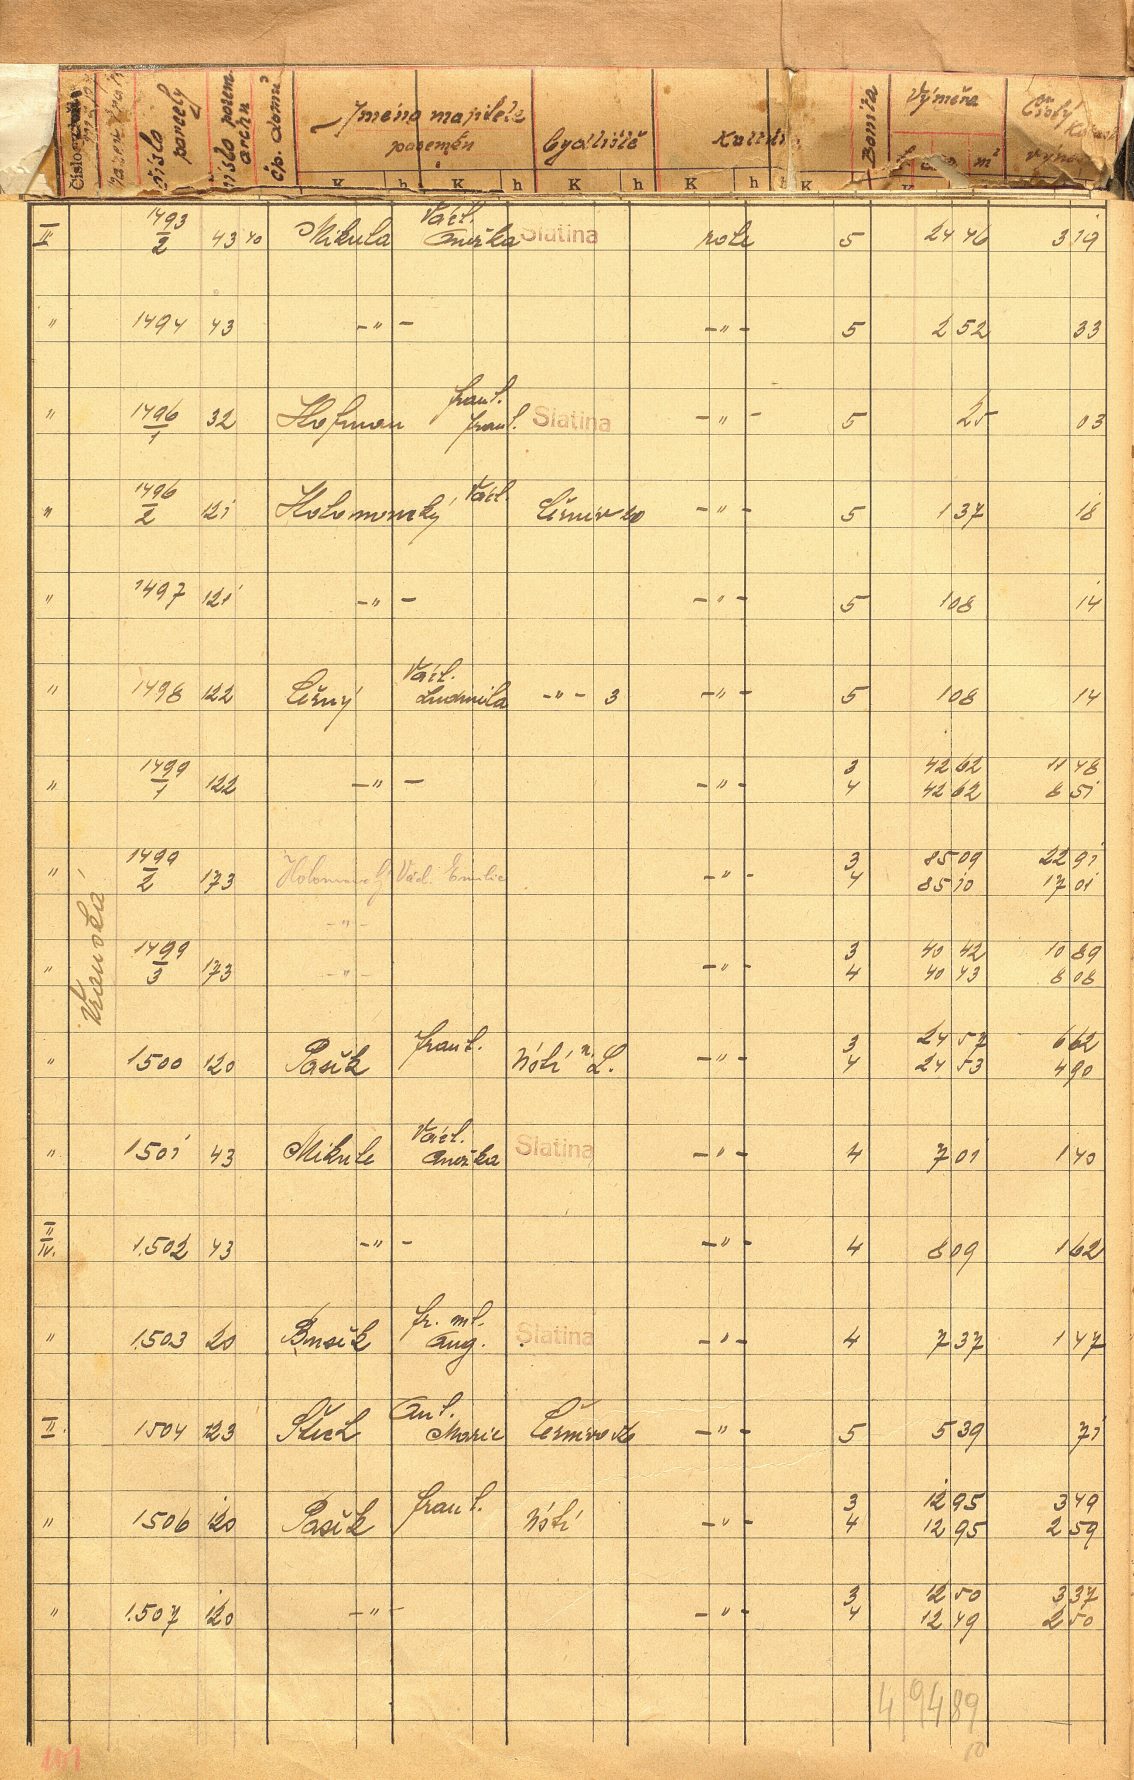 číslo parcely
číslo pozem. archu
čp. domu
Jméno majitele pozemku
Bydliště
Bonita
Výměra
Čistý
K h K h K h K h
II 1493/2 43 40 Mikula Václ. Anežka Slatina role 5 24 46 3 19
" 1494 43 -"- -"- 5 2 52 33
" 1496/1 32 Hofman frant. frant. Slatina -"- 5 25 03
" 1496/2 121 Holomoucký Václ. -"- 5 1 37 18
" 1497 121 -"- -"- 5 1 08 14
" 1498 122 Černý Václ. Ludmila -"- 3 -"- 5 1 08 14
" 1499/1 122 -"- -"- 3 42 62 11 48
4 42 62 8 51
" 1499/2 173 Václ. Emilie -"- 3 85 09 22 91
4 85 10 17 01
-"-
" 1499/3 173 -"- -"- 3 40 42 10 89
4 40 43 8 08
" 1500 120 Pasík frant. -"- 3 24 57 6 62
4 24 53 4 90
" 1501 43 Mikule Václ. Anežka Slatina -"- 4 7 01 1 40
II/IV. 1502 43 -"- -"- 4 8 09 1 62
" 1503 20 fr. ml. Aug. Slatina -"- 4 7 37 1 47
II. 1504 123 Ant. Marie -"- 5 5 39 71
" 1506 120 Pasík frant. -"- 3 12 95 3 49
4 12 95 2 59
" 1507 120 -"- -"- 3 12 50 3 37
4 12 49 2 50
4 94 89